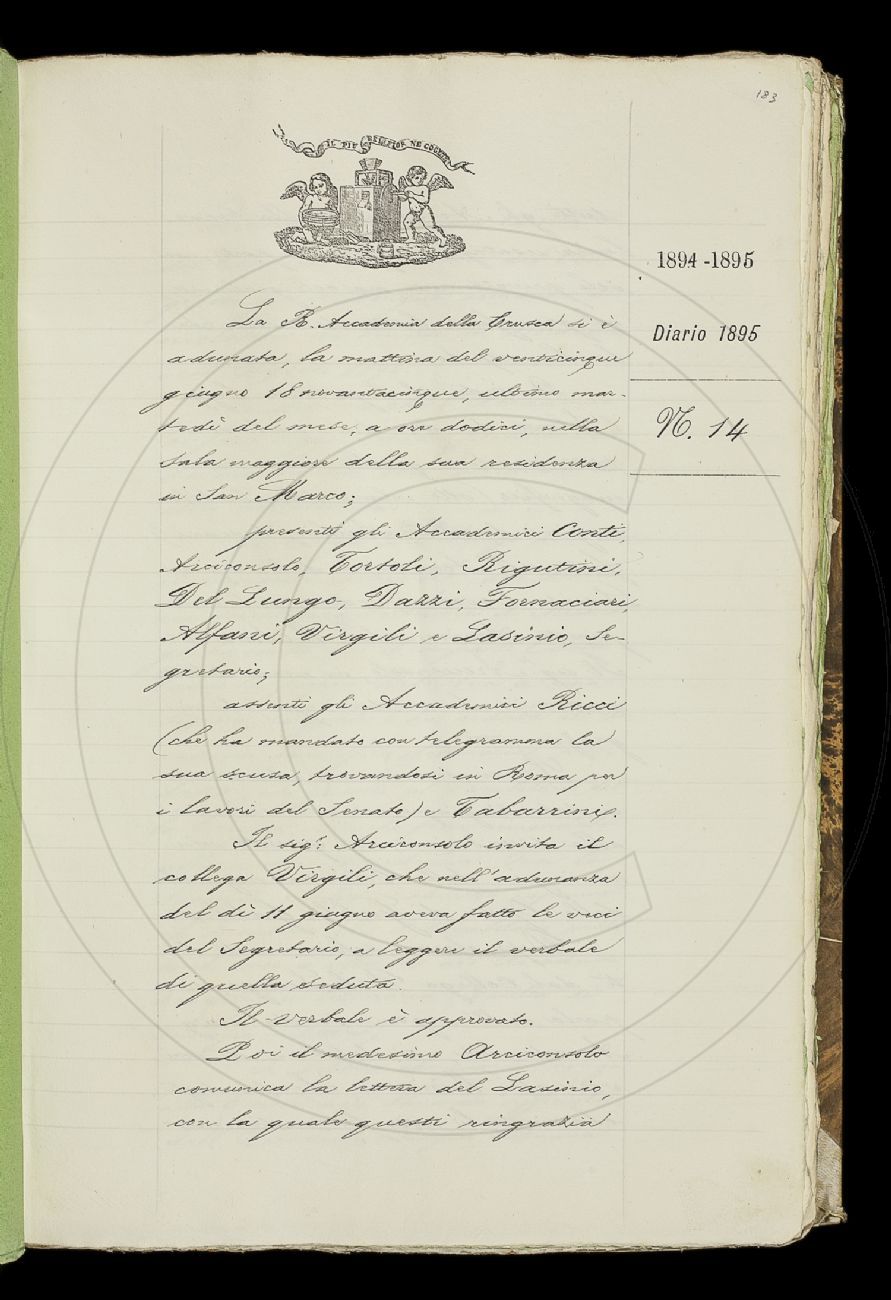 183
IL PIÙ BEL FIOR NE COGLIE
1894-1895
Diario 1895
N. 14
La R. Accademia della Crusca si è
adunata, la mattina del venticinque
giugno 18novantacinque, ultimo mar-
tedì del mese, a ore dodici, nella
sala maggiore della sua residenza
in San Marco;
presenti gli Accademici Conti,
Arciconsolo, Tortoli, Rigutini,
Del Lungo, Dazzi, Fornaciari,
Alfani, Virgili e Lasinio, Se-
gretario;
assenti gli Accademici Ricci
(che ha mandato con telegramma la
sua scusa, trovandosi in Roma per
i lavori del Senato) e Tabarrini.
Il sig.r Arciconsolo invita il
collega Virgili, che nell'adunanza
del dì 11 giugno aveva fatto le veci
del Segretario, a leggere il verbale
di quella seduta.
Il verbale è approvato.
Poi il medesimo Arciconsolo
comunica la lettera del Lasinio,
con la quale questi ringrazia